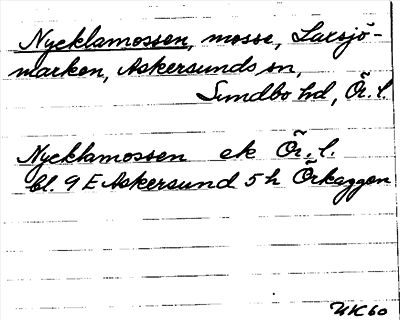 Nycklamossen, mosse, Laxsjö-
marken, Askersunds sn,
Sundbo hd, Ör. l.
Nycklamossen ek Ör. l.
bl. 9 E Askersund 5 h Örkaggen
UK60